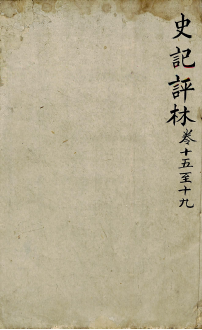 史記評林 卷十五至十九